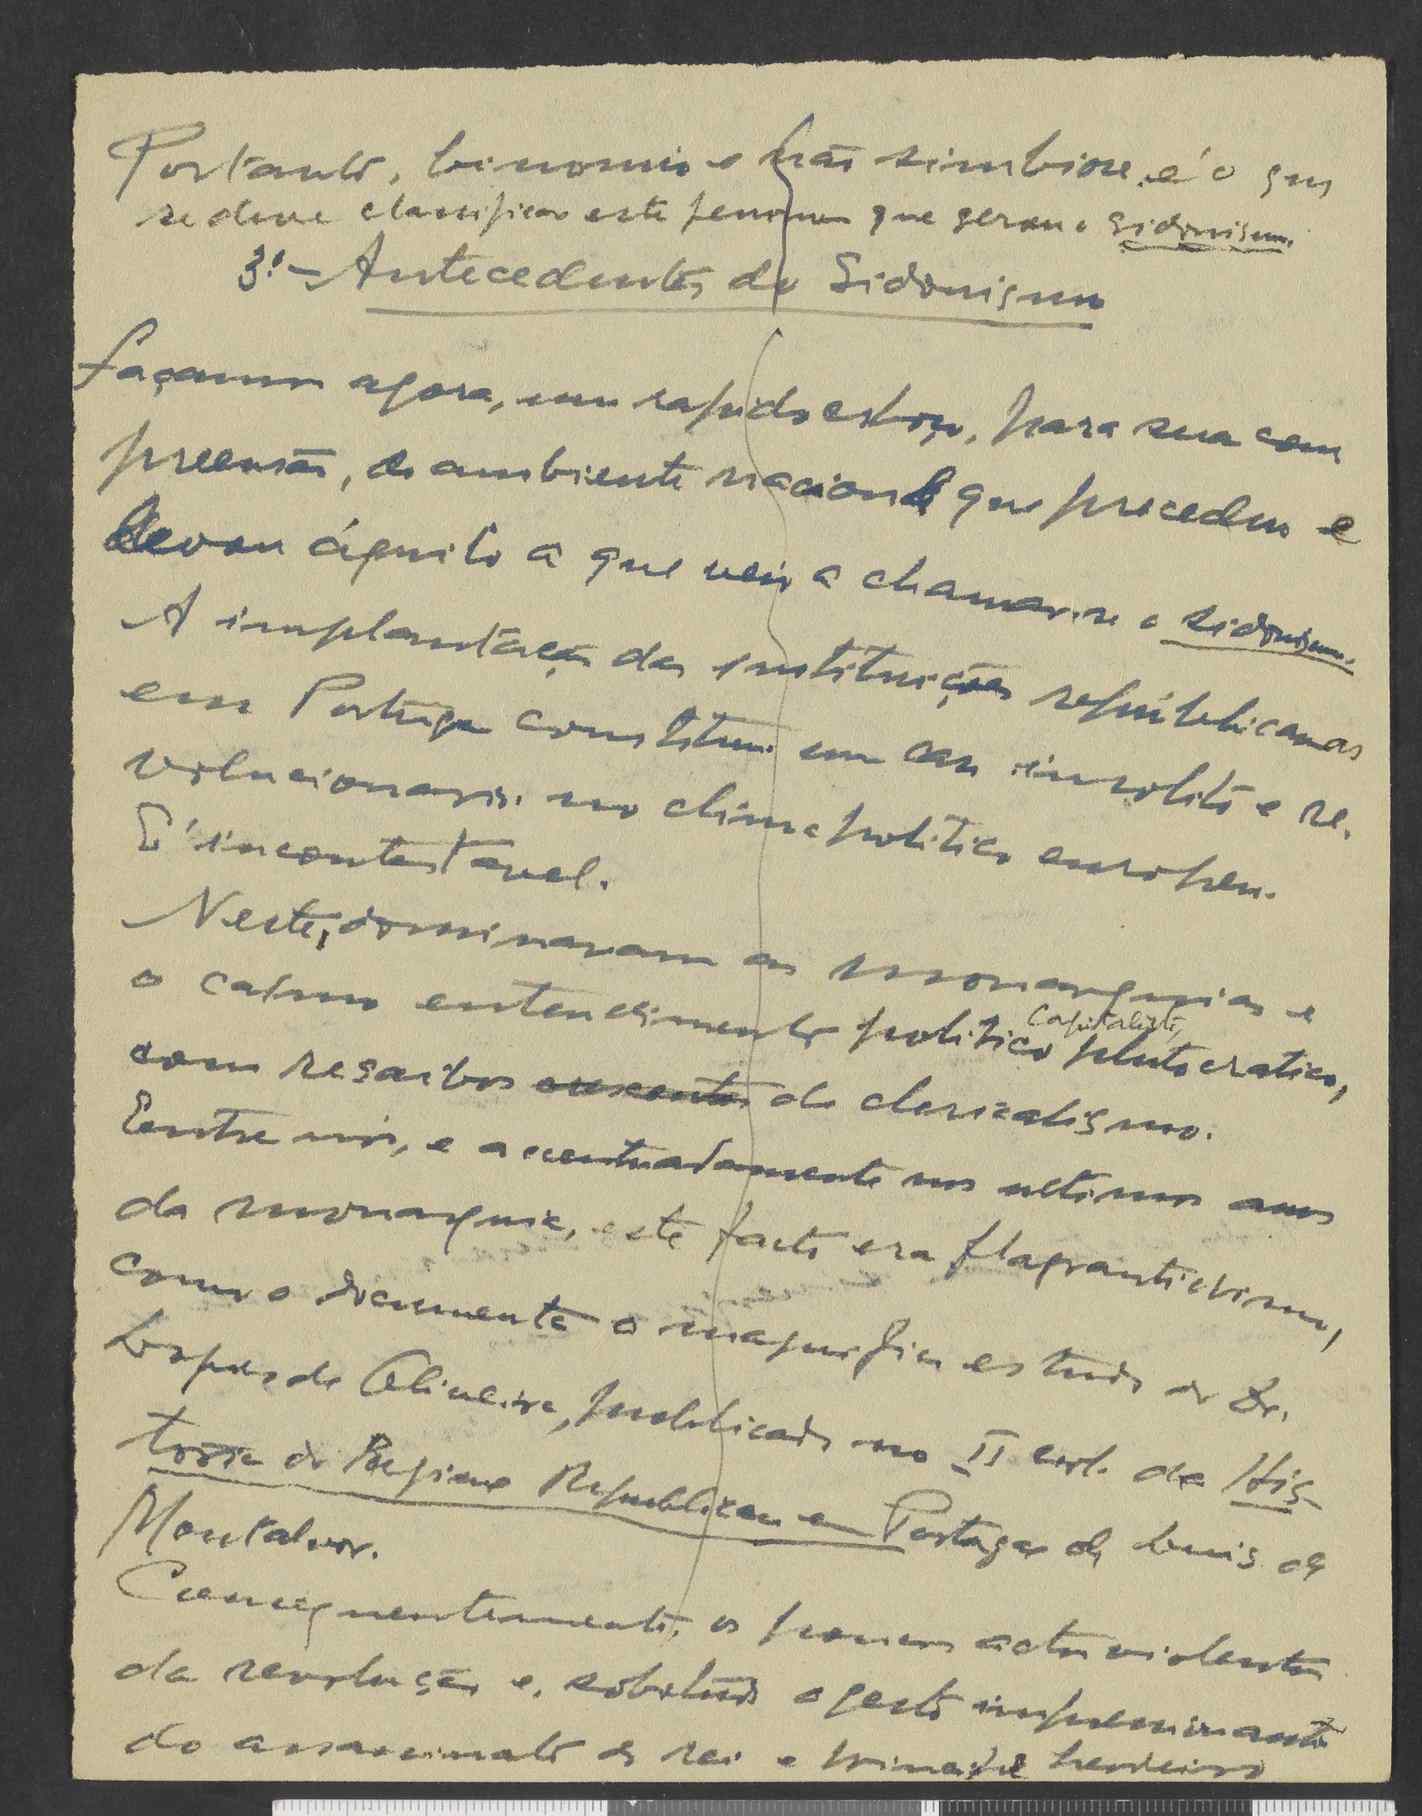 Portanto, binomio e não simbiose, é o que
se deve classificar este fenomeno que gerou o sidonismo.
3.º - Antecedentes do Sidonismo
Façamos agora, um rapido esboço, para sua com
preensão, do ambiente nacional que precedeu e
levou áquilo a que veio a chamar-se o sidonismo.
A implantação das instituições republicanas
em Portugal constituiu um caso insolito e re-
volucionario no clima politico europeu.
É incontestavel.
Neste, dominavam as monarquias e
o calmo entendimento politico capitalista, plutocratico,
com resaibos crescentes de clericalismo.
Entre nós, e acentuadamente nos ultimos anos
da monarquia, este facto era flagrantissimo,
como o documenta o magnifico estudo do Dr.
Lopes de Oliveira, publicado no II vol. da His-
toria do Regimen Republicano em Portugal de Luis de
Montalvor.
Consequentemente, os poucos actos violentos
da revolução e, sobretudo o gesto impressionante
do assassinato do rei e principe herdeiro